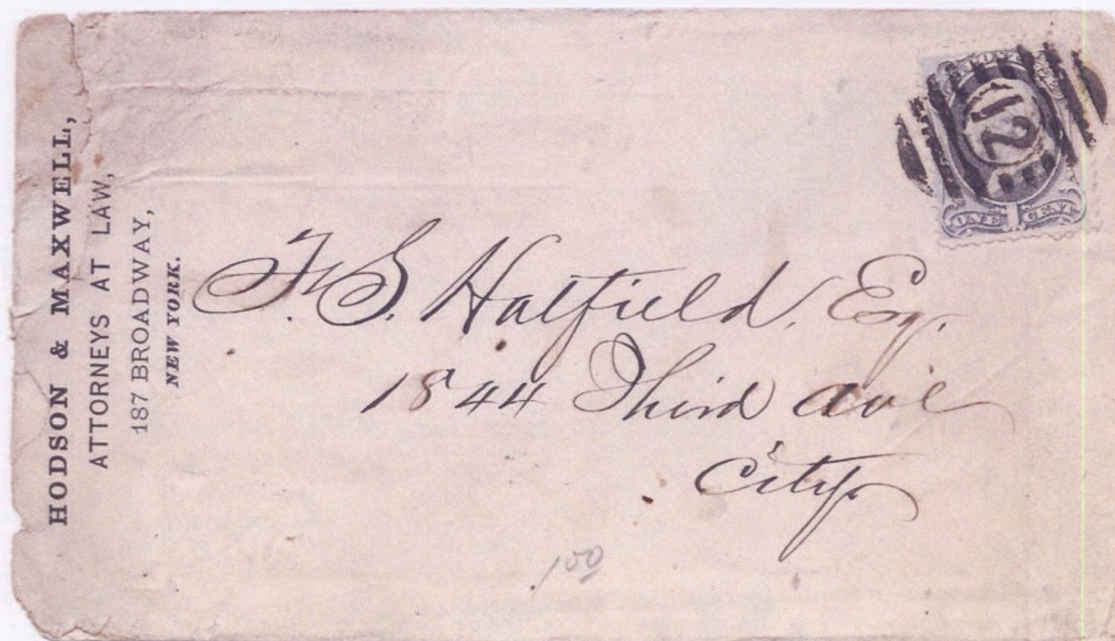 HODSON & MAXWELL,
ATTORNEYS AT LAW,
187 BROADWAY,
NEW YORK.
12
ONE 1 CENT
F. S. Hatfield, Esq.
1844 Third ave
City
1 50